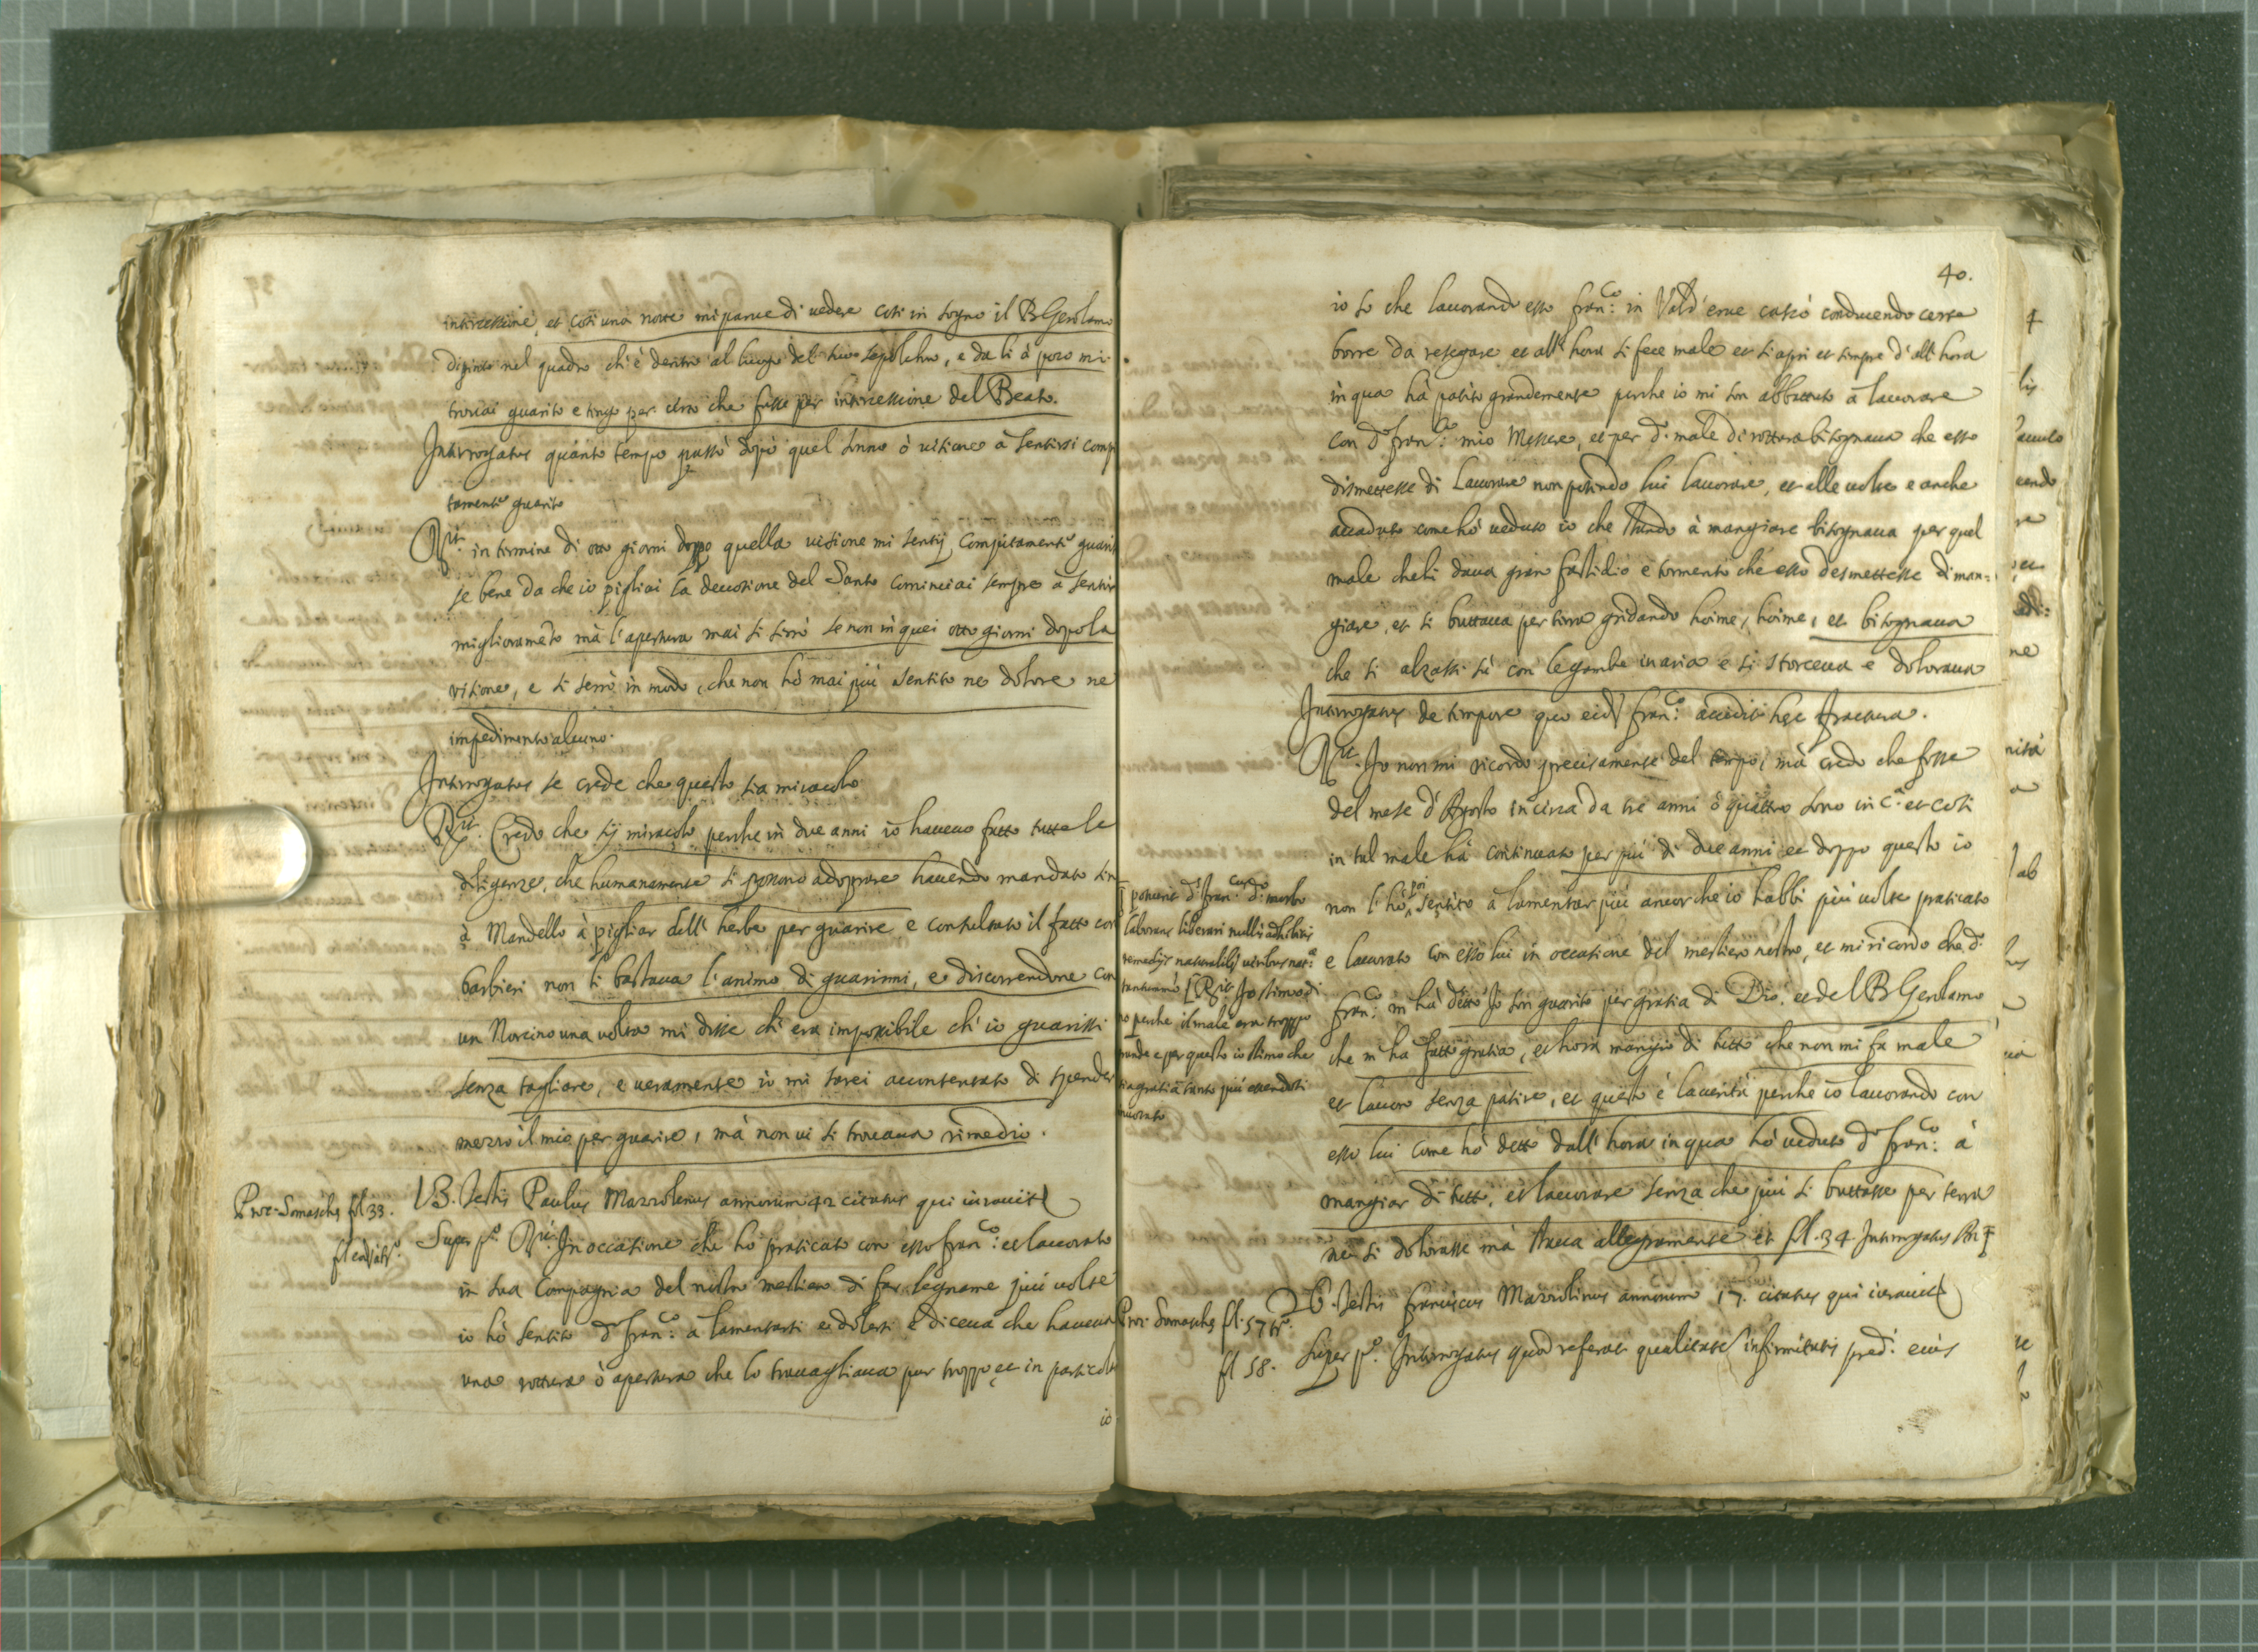 intercessione, et così una notte mi parue di uedere così in sogno il B Gerolamo
dipinto nel quadro ch'è dentro al luogo del suo sepolchro, e da lì à poco mi
trouai guarito e tengo per certo che fusse per intercessione del Beato.
Interrogatus quanto tempo passò dopò quel sonno ò uisione à sentirsi comp
tamente guarito
Rit. in termine di otto giorni doppo quella uisione mi sentij Compitamente guarito
se bene da che io pigliai la deuotione del Santo cominciai sempre à sentir
miglioramento mà l'apertura mai si serrò se non in quei otto giorni dopo la
visione, e si serrò in modo, che non hò mai più sentito ne dolore ne
impedimento alcuno.
Interrogatus se crede che questo sia miracolo
Rit. Credo che sij miracolo perche in due anni io haueuo fatto tutte le
diligenze, che humanamente si possono adoprare hauendo mandato sin
à Mandello à pigliar dell' herbe per guarire e consultato il fatto con
barbieri non li bastaua l'animo di guarirmi, e discorrendone con
un Norcino una uolta mi disse ch'era impossibile ch'io guarissi
senza tagliare, e ueramente io mi sarei accontentato di spender
mezzo il mio per guarire, mà non ui si trouaua rimedio.
Proc. Somaschę fol 33.
fl eod. at.º
13. Testis Paulus Mazzolenus annorum 42 citatus qui iurauit
Super pº. Rit. In occasione che hò praticato con esso Franco: et lauorato
in sua Compagnia del nostro mestiero di far legname più uolte
io hò sentito do Franco: à lamentarsi e dolersi e diceua che haueua
una rottura ò apertura che lo trauagliaua pur troppo, et in particolar
io
40.
io so che lauorando esso Franco: in Vald'erue cascò conducendo certe
borre da resegare et all' hora si fece male et si aprì et sempre d'all' hora
in qua hà patito grandemente perche io mi son abbattuto à lauorare
con do Franco: mio Messere, et per do. male di rottura bisognaua che esso
dismettesse di Lauorare non potendo lui lauorare, et alle uolte e anche
accaduto come hò ueduto io che stando à mangiare bisognaua per quel
male cheli daua gran fastidio e tormento che esso desmettesse di man=
giare, et si buttaua per terra gridando hoime, hoime, et bisognaua
che si alzassi sù con le gambe in aria e si storceua e doloraua
Interrogatus de tempore quo eid. Franco: accidit hęc fractura.
Rit. Io non mi ricordo precisamente del tempo, mà credo che fosse
del mese d'Agosto in circa da tre anni ò quattro sono in ca. et così
in tal male hà continuato per più di due anni et doppo questo io
non l'hò poi sentito à lamentar più ancorche io habbi più uolte praticato
e lauorato con esso lui in occasione del mestiero nostro, et mi ricordo che do
Franco: m'hà detto Io son guarito per gratia di Dio, et del B Gerolamo
che m'ha fatto gratia, et hora mangio di tutto che non mi fa male
et lauoro senza patire, et questo è la uerità perche io lauorando con
esso lui come hò detto dall' hora in qua hò ueduto do Franco: à
mangiar di tutto, et lauorare senza che più si buttasse per terra
ne si dolorasse mà staua allegramente et fl. 34 Interrogatus
potuerit ds Fran.cus do: morbo
laborans liberari nullis adhibitis
remedijs naturalib; uiribus nat.
tantummo [Rit Io stimo di
no perche il male era troppo
grande e per questo io stimo che
sia gratia tanto più essendosi
Proc. Somaschę fl. 57 tº.
fl 58.
26. Testis Franciscus Mazzolinus annorum 17. citatus qui iurauit
Super pº. Interrogatus quod referat qualitatem infirmitatis pred. eius